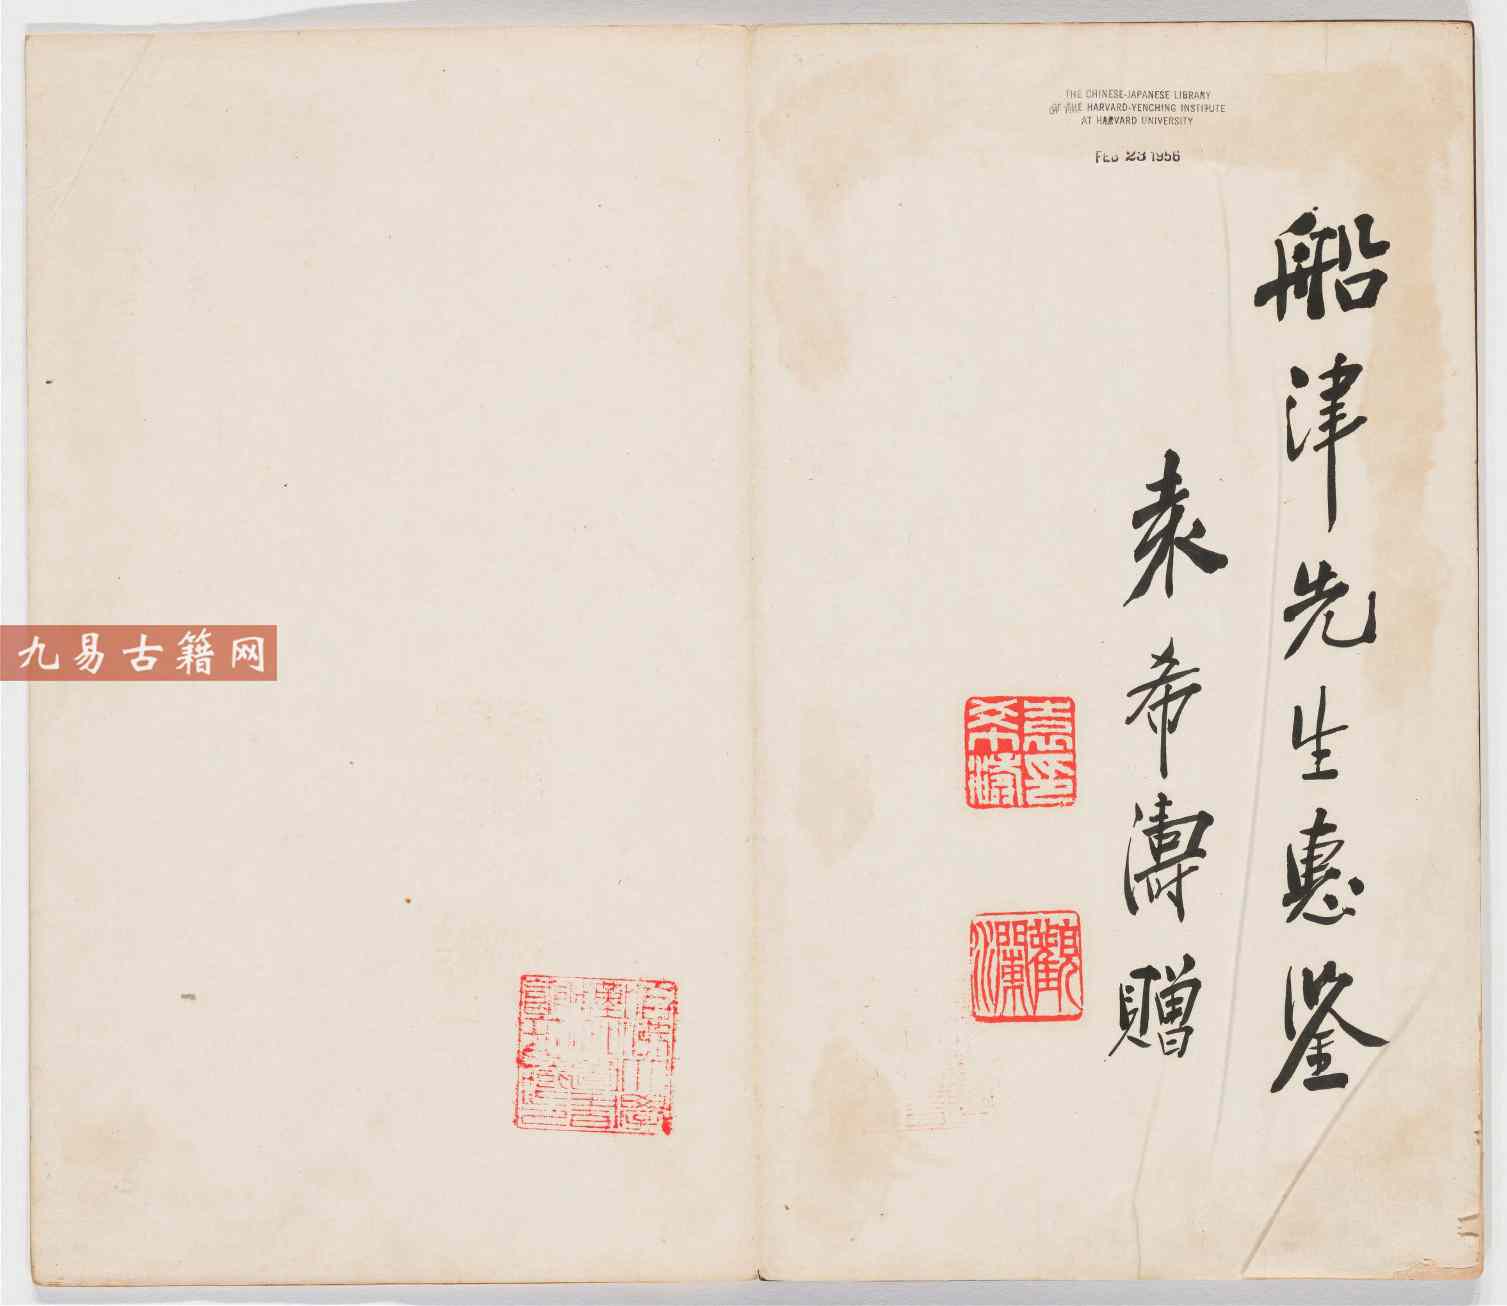 THE CHINESE-JAPANESE LIBRARY
OF THE HARVARD-YENCHING INSTITUTE
AT HARVARD UNIVERSITY
FEB 23 1956
船津先生惠鉴
袁希濤贈
袁希濤印
觀瀾
九易古籍网